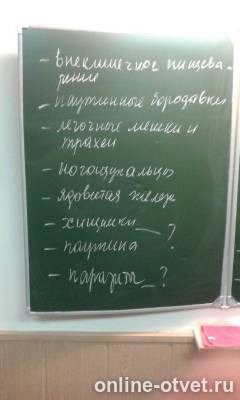 - внекишечное пищева-
рение
- паутинные бородавки
- лёгочные мешки и
трахеи
- ногощупальцы
- ядовитая железа
- хищники _ ?
- паутина
- паразиты _ ?
online-otvet.ru